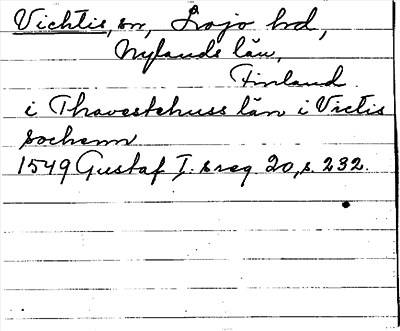 Vichtis, sn, Lojo hd,
Nylands län,
Finland
i Thavestehuss län i Victis
sochenn
1549 Gustaf I. s reg 20, s. 232.